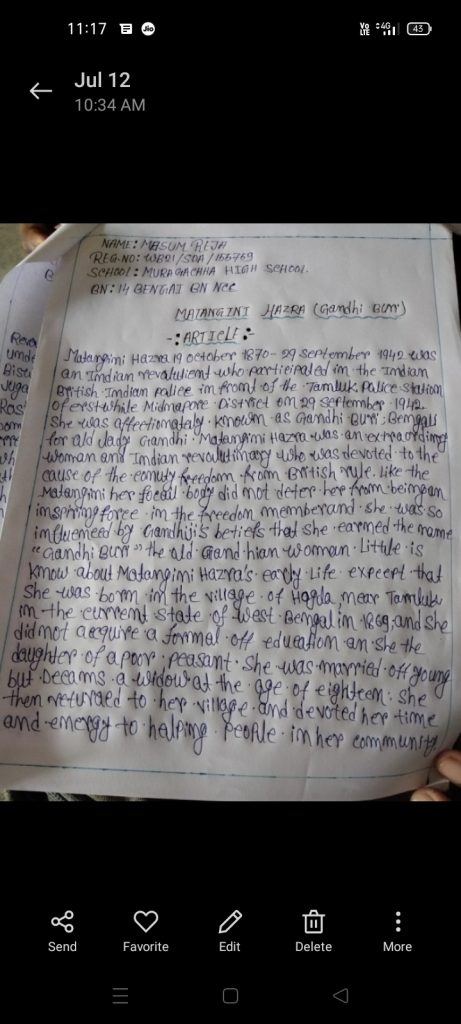 11:17
Jio
Vo LTE
4G
43
Jul 12
10:34 AM
NAME: MASUM REJA
REG.NO: WB21/SDA/166769
SCHOOL: MURAGACHHA HIGH SCHOOL.
BN: 14 BENGAI BN NCC
MATANGINI HAZRA (Gandhi Burr)
-: ARTICLE :-
Matangini Hazra 19 October 1870- 29 September 1942 was
an Indian who participated in the Indian
British Indian police in front of the Tamluk Police Station
of erstwhile Midnapore District on 29 September 1942.
She was affectionately known as Gandhi Buri Bengali
for old lady Gandhi. Matangini Hazra was an
woman and Indian who was devoted to the
cause of the freedom from British rule. like the
Matangini her body did not deter her from
inspiring force in the freedom and she was so
influenced by Gandhiji's beliefs that she earned the name
"Gandhi Buri" the old Gandhian woman. Little is
know about Matangini Hazra's early Life except that
She was born in the village of Hogla near Tamluk
in the current state of west Bengal in 1869, and she
did not acquire a formal off education an she the
daughter of a poor peasant. She was married off young
but a widow at the age of eighteen. She
then returned to her village and devoted her time
and energy to helping people in her community
Send
Favorite
Edit
Delete
More